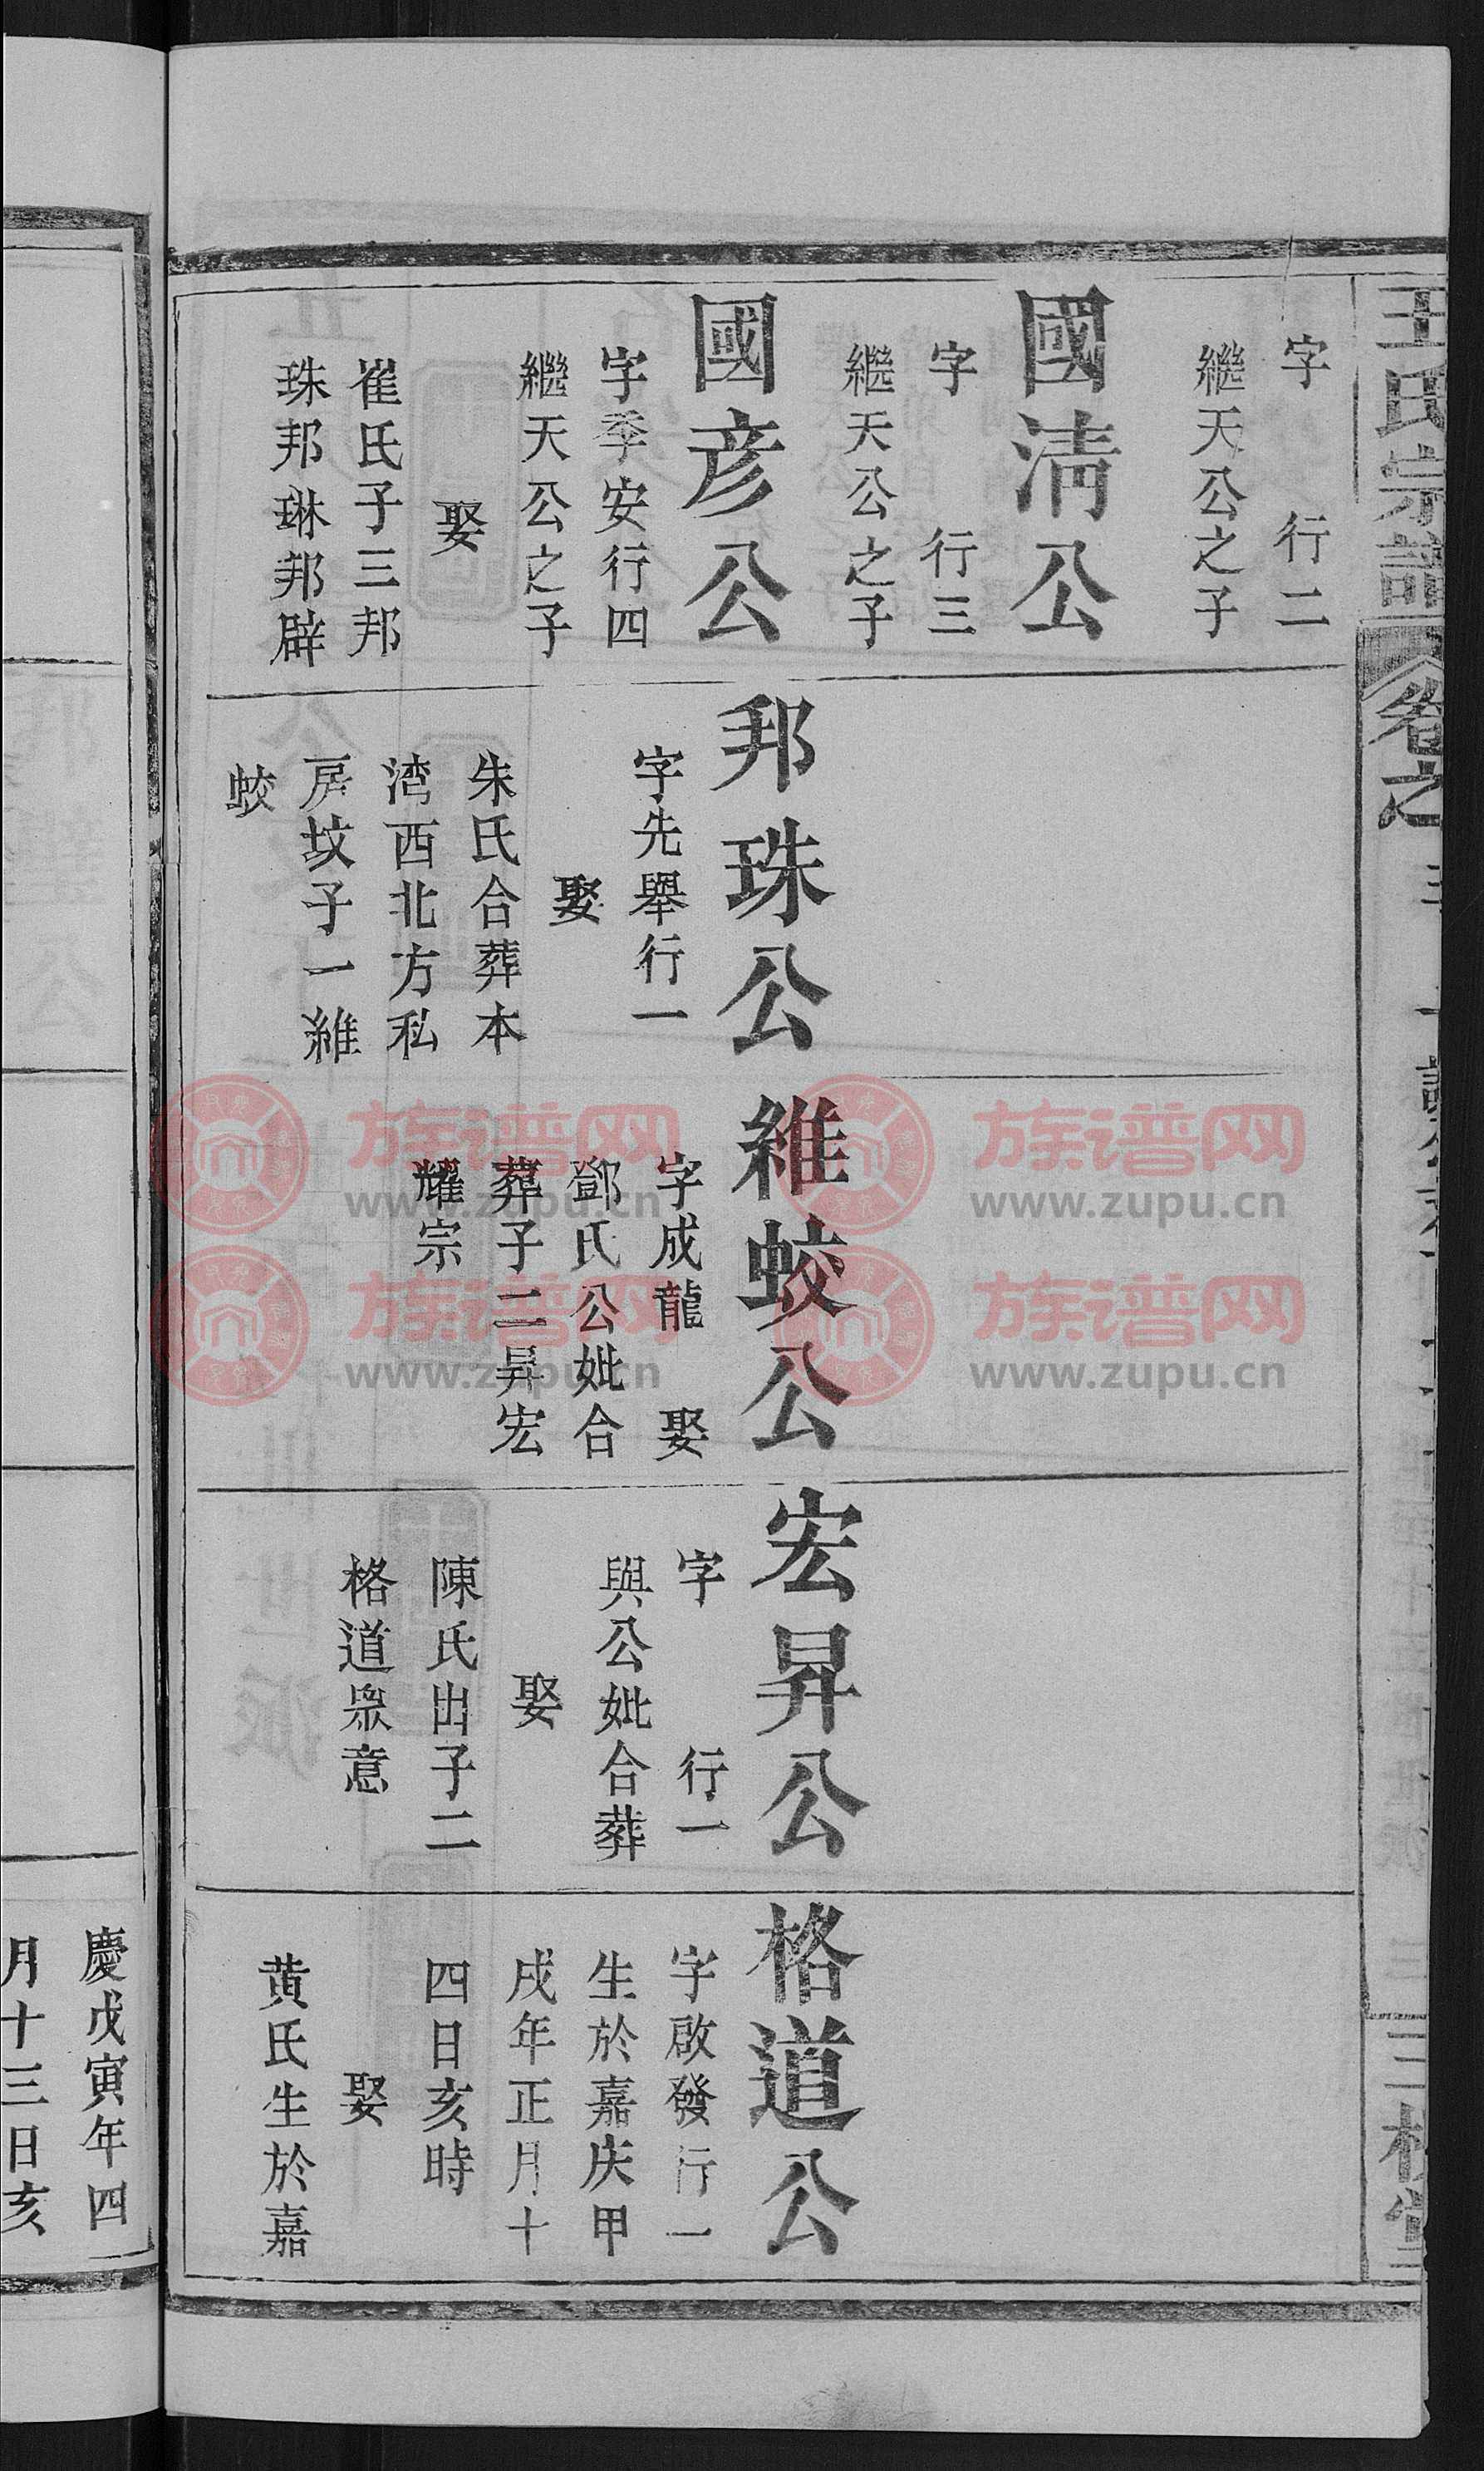 王氏宗譜
卷之
字　行二
繼天公之子
國清公
字　行三
繼天公之子
國彦公
字季安行四
繼天公之子
娶
崔氏子三邦
珠邦琳邦辟
邦珠公
字先舉行一
娶
朱氏合葬本
湾西北方私
房坟子一維
蛟
維蛟公
字成龍　娶
鄧氏公妣合
葬子二昇宏
耀宗
宏昇公
字　行一
與公妣合葬
娶
陳氏出子二
格道衆意
格道公
字啟發行一
生於嘉庆甲
戌年正月十
四日亥時
娶
黄氏生於嘉
慶戊寅年四
月十三日亥
族谱网
www.zupu.cn
族谱网
www.zupu.cn
族谱网
www.zupu.cn
族谱网
www.zupu.cn